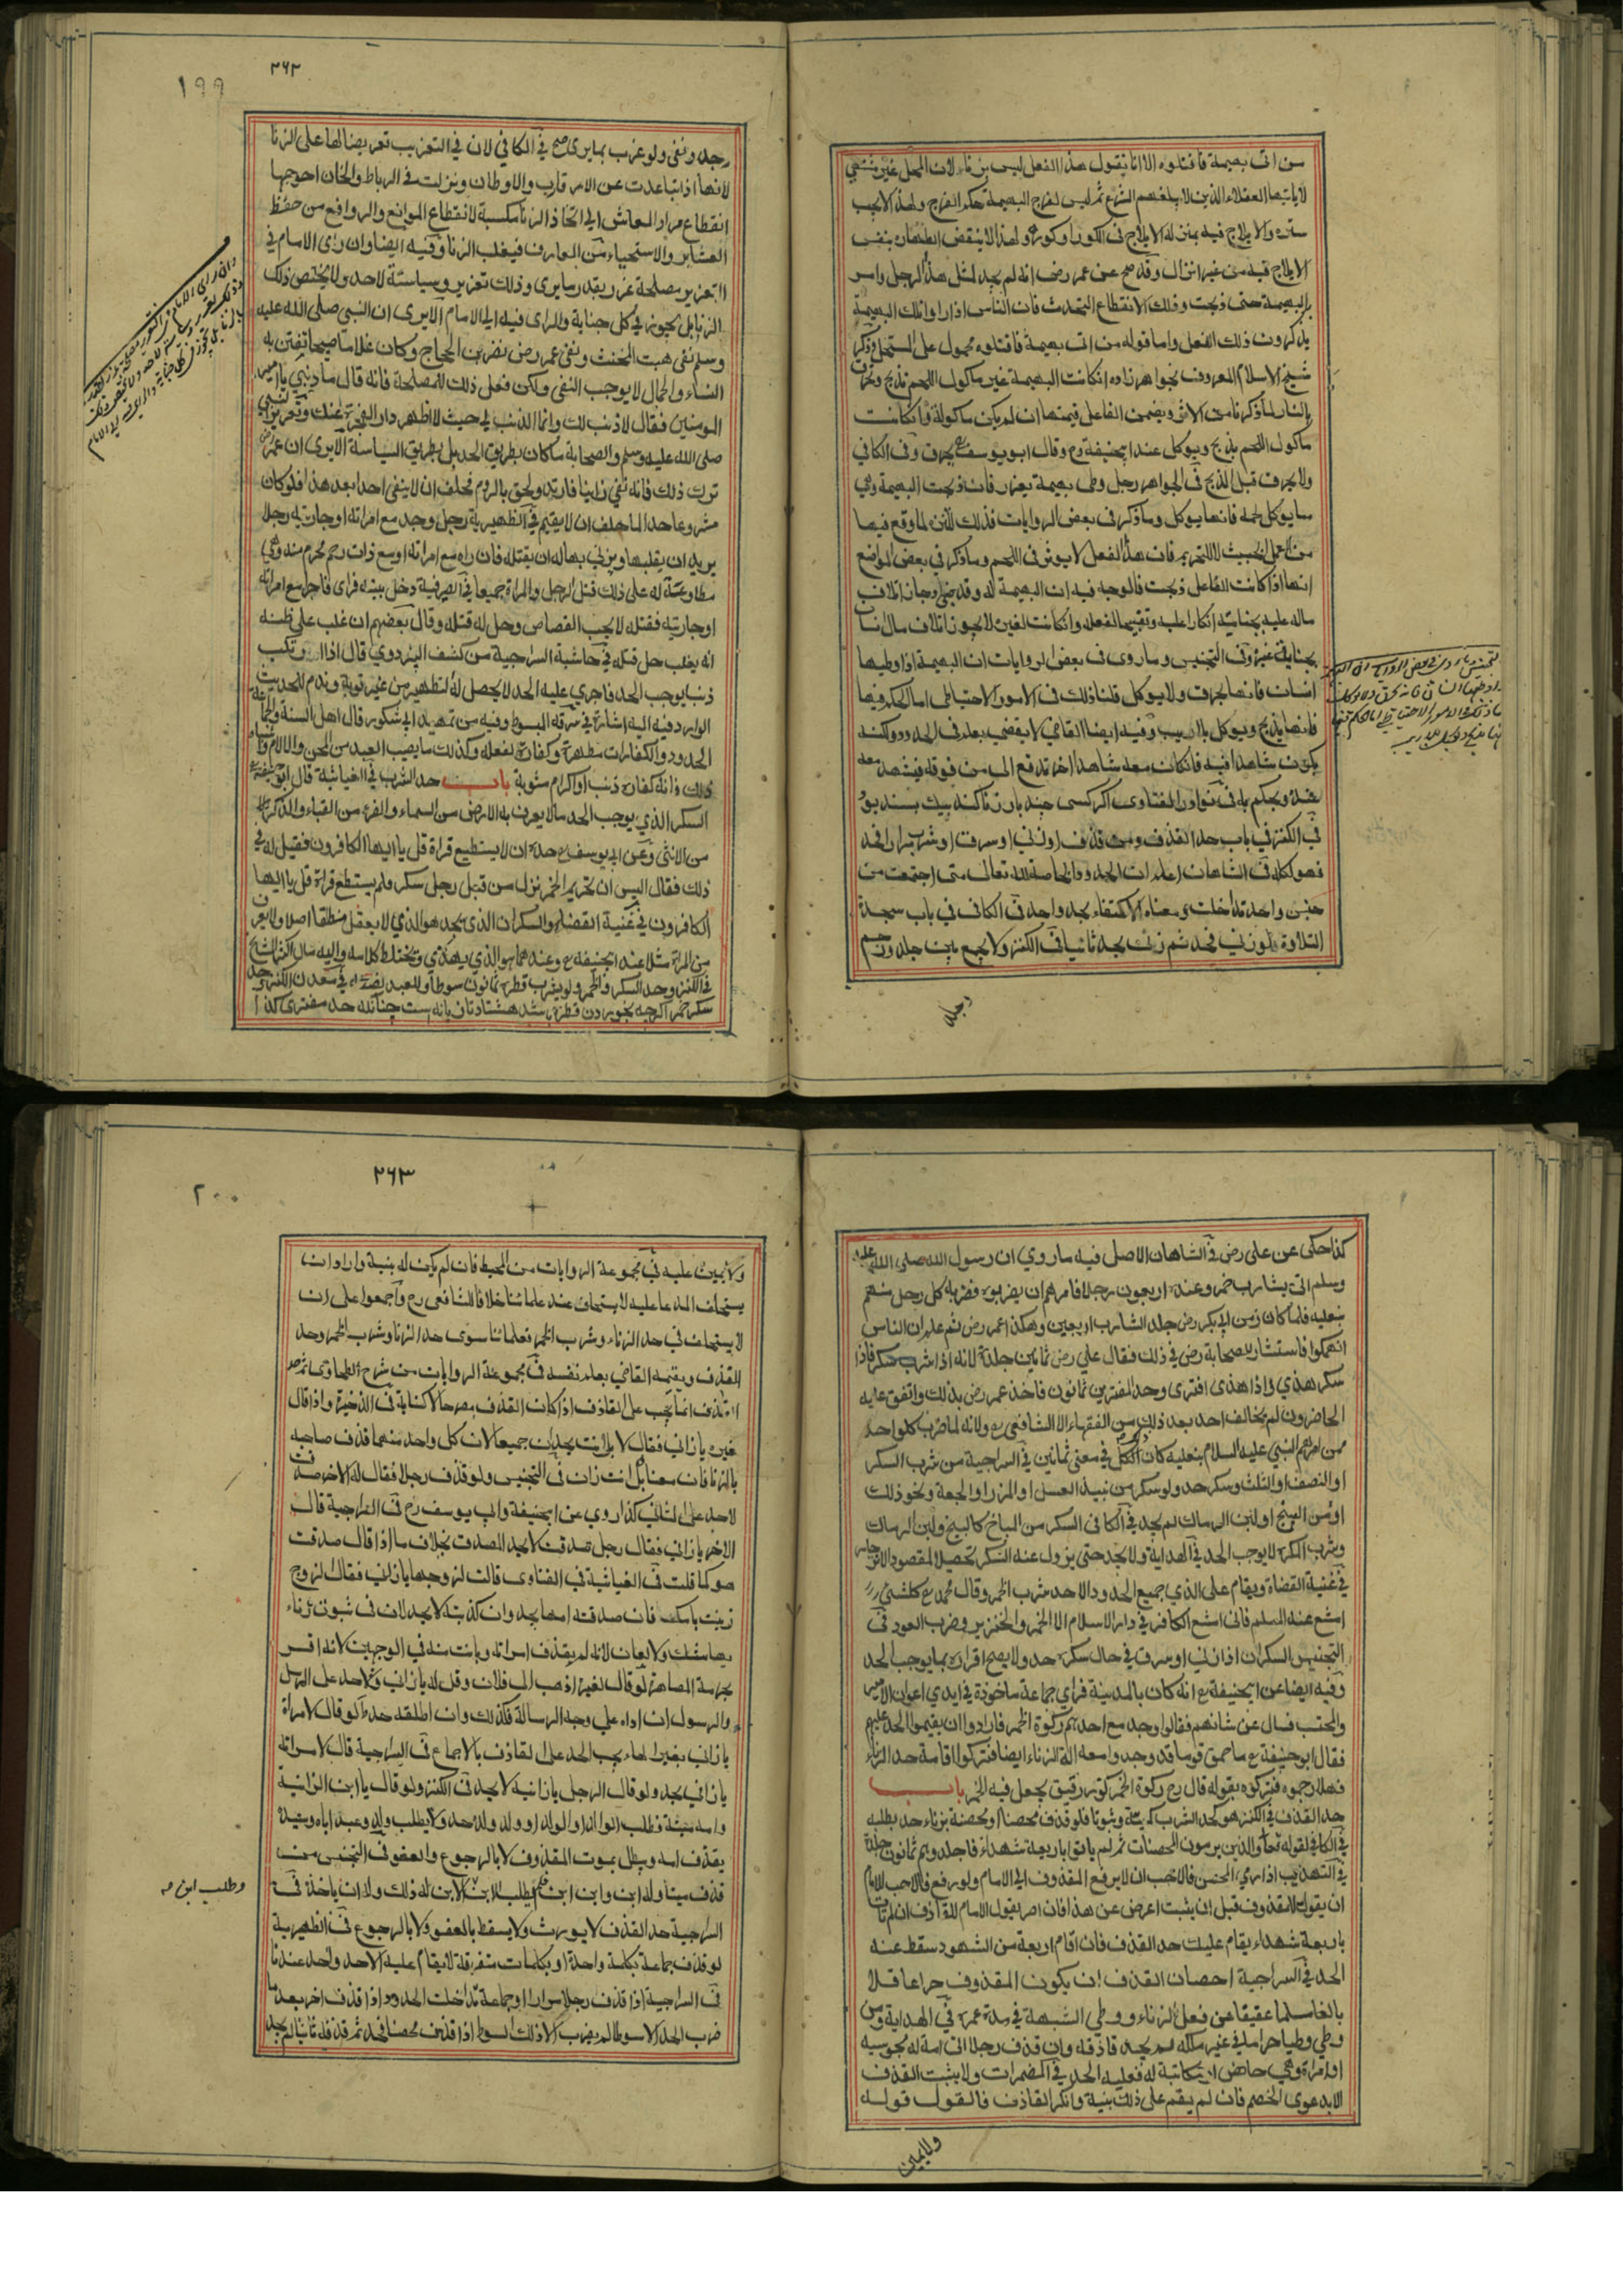 من اتى بهيمة فاقتلوه الا انا نقول هذا الفعل ليس بزناء لان المحل غير مشتهى
لا ياتيها العقلاء الذين لا يبلغهم الشرع ثم ليس لفرج البهيمة حكم الفرج ولهذا لا يجب
ستره والايلاج فيه بمنزلة الايلاج في الكوز او كوة ولهذا لا ينقض الطهارة بنفس
الايلاج فيه من غير انزال وقد صح عن عمر رض انه لم يحد لمثل هذا الرجل وامر
بالبهيمة حتى ذبحت وذلك لانقطاع التحدث فان الناس اذا راوا تلك البهيمة
يذكرون ذلك الفعل واما قوله من اتى بهيمة فاقتلوه محمول على المستحل وذكر
شيخ الاسلام المعروف بخواهرزاده ان كانت البهيمة غير ماكول اللحم تذبح وتحرق
بالنار لما ذكرنا من الاثر ويضمن الفاعل قيمتها ان لم يكن ماكولة وان كانت
ماكول اللحم يذبح ويوكل عند ابيحنيفة رح وقال ابو يوسف رح يحرق وفي الكافي
ولا يحرق قبل الذبح في الجواهر رجل وطى بهيمة يعزر فان ذبحت البهيمة وهي
مما يوكل لحمه فانها يوكل وما ذكر في بعض الروايات فذلك للتنزه لما وقع فيها
من العمل الخبيث لا للتحريم فان هذا الفعل لا يوثر في اللحم وما ذكر في بعض المواضع
انها اذا كانت للفاعل ذبحت فالوجه فيه ان البهيمة له وقد رضي وجاز اتلاف
ماله عليه بجنايته انكارا عليه وتقبيحا لفعله وان كانت لغيره لا يجوز اتلاف مال انسان
بجناية غيره وفي التجنيس وما روي في بعض الروايات ان البهيمة اذا وطيها
انسان فانها يحرق ولا يوكل قلنا ذلك في الامور الاحتياطي اما الحكم فيها
فانها يذبح ويوكل بلا ريب وفيه ايضا القاضي لا يقضي بعلمه في الحدود ولكنه
يكون شاهدا فيه فان كان معه شاهدا اخر تدفع الى من فوقه فيشهد معه
عنده ويحكم به في نوادر الفتاوى اگر كسى چند بار زنا كند بيك بسند بود
في الكنز في باب حد القذف ومن قذف او زنى او سرق او شرب مرارا فحد
فهو لكله في الشاهان اعلم ان الحدود الخاصة لله تعالى متى اجتمعت من
جنس واحد تداخلت ومعناه الاكتفاء بحد واحد في الكافي في باب سجدة
التلاوة فلو زنى فحد ثم زنى يحد ثانيا في الكنز ولا يجمع بين جلد ورجم
رجله
٢٦٢
١٩٩
رجله ونفى ولو غرب بما يرى صح في الكافي لان في التغريب تعريضا لها على الزنا
لانها اذا تباعدت عن الاقارب والاوطان ونزلت في الرباط والخان احوجها
انقطاع مواد المعاش الى اتخاذ الزنا مكسبة لانقطاع الموانع والروافع من حفظ
العشاير والاستحياء من المعارف فيغلب الزنا وفيه ايضا وان راى الامام في
التغريب مصلحة غرر بقدر ما يرى وذلك تعزير وسياسة لاحد ولا يختص ذلك
الزنا بل يجوز في كل جناية والراى فيه الى الامام الا يرى ان النبي صلى الله عليه
وسلم نفى هيت المخنث ونفى عمر رض نضر بن الحجاج وكان غلاما صبيحا تفتن به
النساء والجمال لا يوجب النفي ولكن فعل ذلك للمصلحة فانه قال ما ذنبي يا امير
المومنين فقال لا ذنب لك وانما الذنب لي حيث لا اطهر دار الهجرة عنك وتغريب النبي
صلى الله عليه وسلم والصحابة ما كان بطريق الحد بل بطريق السياسة الا يرى ان عمر رض
ترك ذلك فانه نفى زانيا فارتد ولحق بالروم فحلف ان لا ينفى احدا بعد هذا فلو كان
مشروعا حدا لما حلف ان لا يقيم في الظهيرية رجل وجد مع امراته او جاريته رجلا
يريد ان يغلبها ويزني بها له ان يقتله فان راه مع امراته او مع ذات رحم محرم منه وهي
مطاوعة له على ذلك قتل الرجل والمراة جميعا في الصيرفية دخل بيته فراى فاجرا مع امراته
او جاريته فقتله لا يجب القصاص وحل له قتله وقال بعضهم ان غلب على ظنه
انه يغلب حل قتله في حاشية السراجية من كشف البزدوي قال اذا ارتكب
ذنبا يوجب الحد فاجري عليه الحد لا يحصل له التطهير من غير توبة وندم للحديث
الوارد فيه اليه اشارة في سرقة المبسوط وفيه من تمهيد ابي شكور قال اهل السنة والجماعة
الحدود والكفارات مطهرة وكفارة لفعله وكذلك ما يصيب العبد من المحن والالام واشباه
ذلك فانه كفارة ذنب او اكرام مثوبة باب حد الشرب في الغياثية قال ابو حنيفة رح
السكر الذي يوجب الحد مالا يعرف به الارض من السماء والفرو من القباء والذكر
من الانثى وعن ابي يوسف رح حده ان لا يستطيع قراة قل يا ايها الكافرون فقيل له في
ذلك فقال اليس ان تحريم الخمر نزل من قبل رجل سكر فلم يستطع قراة قل يا ايها
الكافرون في غنية القضاة والسكران الذي يحد هو الذي لا يعقل منطقا اصلا ولا يعرف
من المراة مثلا عند ابيحنيفة رح وعندهما هو الذي يهذي ويختلط كلامه واليه مال اكثر المشايخ
في الكنز وحد السكر والخمر ولو بشرب قطرة ثمانون سوطا وللعبد نصفه في معدن الكنز حد
سكر خمر اگرچه بخوردن قطره باشد هشتاد تازيانه است چنانكه حد مفترى كذا
كذا حكى عن علي رض في الشاهان الاصل فيه ما روي ان رسول الله صلى الله عليه
وسلم اتى بشارب خمر وعنده اربعون رجلا فامرهم ان يضربوه فضربه كل رجل منهم
بنعليه فلما كان زمن ابي بكر رض جلد الشارب اربعين وهكذا عمر رض ثم علم ان الناس
انهمكوا فاستشار الصحابة رض في ذلك فقال علي رض ثمانين جلدة لانه اذا شرب سكر فاذا
سكر هذي واذا هذى افترى وحد المفترين ثمانون فاخذ عمر رض بذلك واتفق عليه
الحاضرون لم يخالف احد بعد ذلك من الفقهاء الا الشافعي رح ولانه لما ضرب كل واحد
ممن امرهم النبي عليه السلام بنعليه كان الكل في معنى ثمانين في السراجية من شرب السكر
او النصف او الثلث وسكر حد ولو سكر من نبيذ العسل او المزر او الجعة ونحو ذلك
او من البنج او لبن الرماك لم يحد في الكافي السكر من المباح كالبنج ولبن الرماك
وشرب المكره لا يوجب الحد في الهداية ولا يحد حتى يزول عنه السكر تحصيلا لمقصود الانزجار
في غنية القضاة ويقام على الذي جميع الحدود الا حد شرب الخمر وقال محمد رح كل شيء
امنع عنه المسلم فاني امنع الكافر في دار الاسلام الا الخمر والخنزير وضرب العود في
التجنيس السكران اذا زنى او سرق في حال سكره حد ولا يصح اقراره بما يوجب الحد
وفيه ايضا عن ابيحنيفة رح انه كان بالمدينة فراى جماعة ماخوذة في ايدي اعوان الامير
والمحتسب فسال عن شانهم فقالوا وجد مع احدهم ركوة الخمر فارادوا ان يقيموا الحد عليهم
فقال ابو حنيفة رح ما حمق قوما قد وجد واسعه الة الزناء ايضا فتركوا اقامة حد الزناء
فهلا رجموه فتركوه بقوله قال رح ركوة الخمر كوزه رقيق يجعل فيه الخمر باب
حد القذف في الكنز هو كحد الشرب كمية وثبوتا فلو قذف محصنا او محصنة بزناء حد بطلبه
في الكافي لقوله تعالى والذين يرمون المحصنات ثم لم ياتوا باربعة شهداء فاجلدوهم ثمانون جلدة
في التهذيب اذا رمى المحصن فالاحب ان لا يرفع المقذوف الى الامام ولو رفع فالاحب للامام
ان يقول للمقذوف قبل ان يثبت اعرض عن هذا فان اصر يقول الامام للقاذف ان لم تات
باربعة شهداء يقام عليك حد القذف فان اقام اربعة من الشهود سقط عنه
الحد في السراجية احصان القذف ان يكون المقذوف حرا عاقلا
بالغا مسلما عفيفا عن فعل الزناء ووطي الشبهة في مدة عمره في الهداية ومن
وطي وطيا حراما في غير ملكه لم يحد قاذفه وان قذف رجلا اتى امة له مجوسية
او امراة وهي حائض او مكاتبة له فعليه الحد في المضمرات ولا يثبت القذف
الا بدعوى الخصم فان لم يقم على ذلك بينة وانكر القاذف فالقول قوله
ولا يمين
٢٦٣
٢٠٠
ولا يمين عليه في مجموعة الروايات من المحيط فان لم يكن له بينة واراد ان
يستحلف المدعا عليه لا يستحلف عند علمائنا خلافا للشافعي رح واجمعوا على ان
لا يستحلف في حد الزناء وشرب الخمر فعلمائنا سوى حد الزنا وشرب الخمر وحد
القذف ويقيمه القاضي بعلم نفسه في مجموعة الروايات من شرح الطحاوي ثم حد
القذف انما يجب على القاذف اذا كان القذف مصرحا لا كناية في الذخيرة واذا قال
غيره يا زاني فقال لا بل انت يحدان جميعا لان كل واحد منهما قذف صاحبه
بالزنا فان معناه بل انت زان في التجنيس ولو قذف رجلا فقال له الاخر صدقت
لاحد على الثاني كذا روي عن ابيحنيفة وابي يوسف رح في السراجية قال
الاخر يا زاني فقال رجل صدقت لا يحد المصدق بخلاف ما اذا قال صدقت
هو كما قلت في الغياثية في الفتاوى قالت لزوجها يا زاني فقال الزوج
زنيت بامك فان صدقته امها يحد وان كذبته لا يحد لان في ثبوت زناه
بها شك ولا لعان لانه لم يقذف امراته وبانت منه في الوجهين لانه اقر
بحرمة المصاهرة لو قال لغيره اذهب الى فلان وقل له يا زاني فلا حد على المرسل
والرسول ان اداه على وجه الرسالة فكذلك وان اطلقه حد لو قال لامراة
يا زاني بغير الهاء يجب الحد على القاذف بالاجماع في السراجية قال لامراته
يا زاني يحد ولو قال الرجل يا زانية لا يحد في الكنز ولو قال يا ابن الزانية
وامه ميتة فطلب الوالد او الولد او ولد الولد حد ولا يطلب ولد وعبد اباه وسيده
بقذف امه ويبطل بموت المقذوف لا بالرجوع والعفو في التجنيس من
قذف ميتا وله ابن وابن ابن فلم يطلب الابن لابن الابن له ذلك وله ان ياخذ في
وطلب ابن صح
السراجية حد القذف لا يورث ولا يسقط بالعفو ولا بالرجوع في الظهيرية
لو قذف جماعة بكلمة واحدة او بكلمات متفرقة لا يقام عليه الاحد واحد عندنا
في السراجية اذا قذف رجلا مرارا او جماعة تداخلت الحدود اذا قذف اخر بعد ما
ضرب الحد الا سوطا لم يضرب الا ذلك السوط اذا قذف محصنا فحد ثم قذفه ثانيا لم يحد